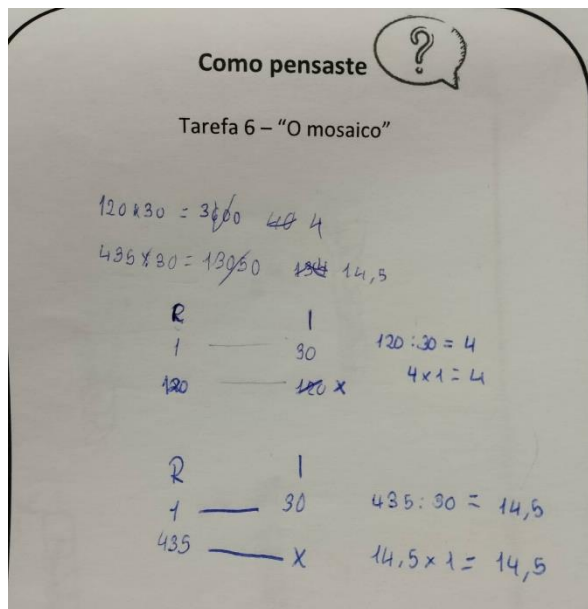 Como pensaste ?
Tarefa 6 – “O mosaico”
120 x 30 = 3600 40 4
435 x 30 = 13050 134 14,5
R I
1 — 30 120 : 30 = 4
120 — 120 x 4 x 1 = 4
R I
1 — 30 435 : 30 = 14,5
435 — x 14,5 x 1 = 14,5